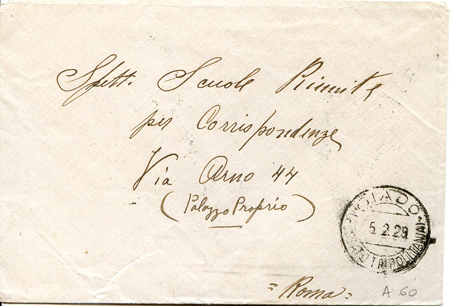 Spett. Scuole Riunite
per Corrispondenze
Via Arno 44
(Palazzo Proprio)
5.2.29
(TRIPOLITANIA)
= Roma =
A 60